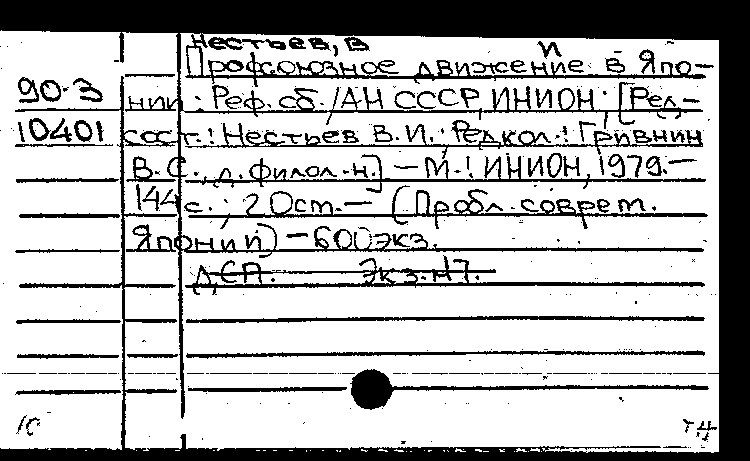 Нестьев, В И
Профсоюзное движение в Япо-
90-3 нии: Реф. сб. /АН СССР, ИНИОН; [Ред.-
10401 сост.: Нестьев В.И.; Редкол.: Гривнин
В.С., д. филол. н.] – М.: ИНИОН, 1979.–
144 с.; 20 см.– (Пробл. соврем.
Японии) – 600 экз.
ДСП. Экз. н 7.